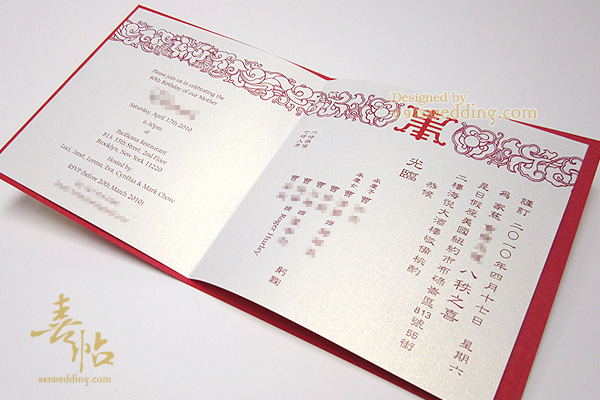 Please join us in celebrating the
80th Birthday of our Mother
Saturday, April 17th 2010
6:30pm
at
Pacificana Restaurant
813 55th Street, 2nd Floor
Brooklyn, New York 11220
Hosted by:
Luci, Janet, Lorena, Eva, Cynthia & Mark Chow
RSVP (before 20th March 2010)
謹訂 二〇一〇年四月十七日 星期六
為 家慈 八秩之喜
是日假座美國紐約市布碌崙區813號55街
二樓海悅大酒樓敬備桃酌
恭候
光臨
曹
曹
曹
曹
Roger Hurley
鞠躬
Designed by
983wedding.com
喜帖
983wedding.com